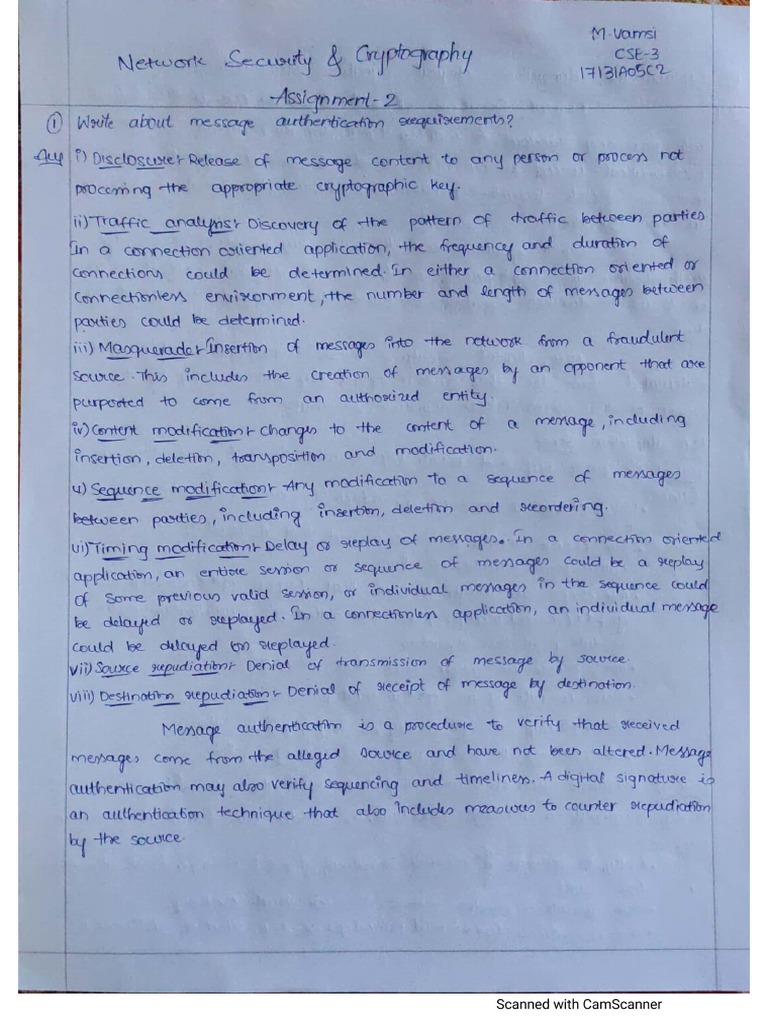 M. Vamsi
Network Security & Cryptography
CSE-3
17131A05C2
Assignment-2
① Write about message authentication requirements?
Ans i) Disclosure:- Release of message content to any person or process not
processing the appropriate cryptographic key.
ii) Traffic analysis:- Discovery of the pattern of traffic between parties
In a connection oriented application, the frequency and duration of
connections could be determined. In either a connection oriented or
connectionless environment, the number and length of messages between
parties could be determined.
iii) Masquerade:- Insertion of messages into the network from a fraudulent
source. This includes the creation of messages by an opponent that are
purported to come from an authorized entity.
iv) Content modification:- Changes to the content of a message, including
insertion, deletion, transposition and modification.
v) Sequence modification:- Any modification to a sequence of messages
between parties, including insertion, deletion and reordering.
vi) Timing modification:- Delay or replay of messages. In a connection oriented
application, an entire session or sequence of messages could be a replay
of some previous valid session, or individual messages in the sequence could
be delayed or replayed. In a connectionless application, an individual message
could be delayed or replayed.
vii) Source repudiation:- Denial of transmission of message by source.
viii) Destination repudiation:- Denial of receipt of message by destination.
Message authentication is a procedure to verify that received
messages come from the alleged source and have not been altered. Message
authentication may also verify sequencing and timeliness. A digital signature is
an authentication technique that also includes measures to counter repudiation
by the source.
Scanned with CamScanner